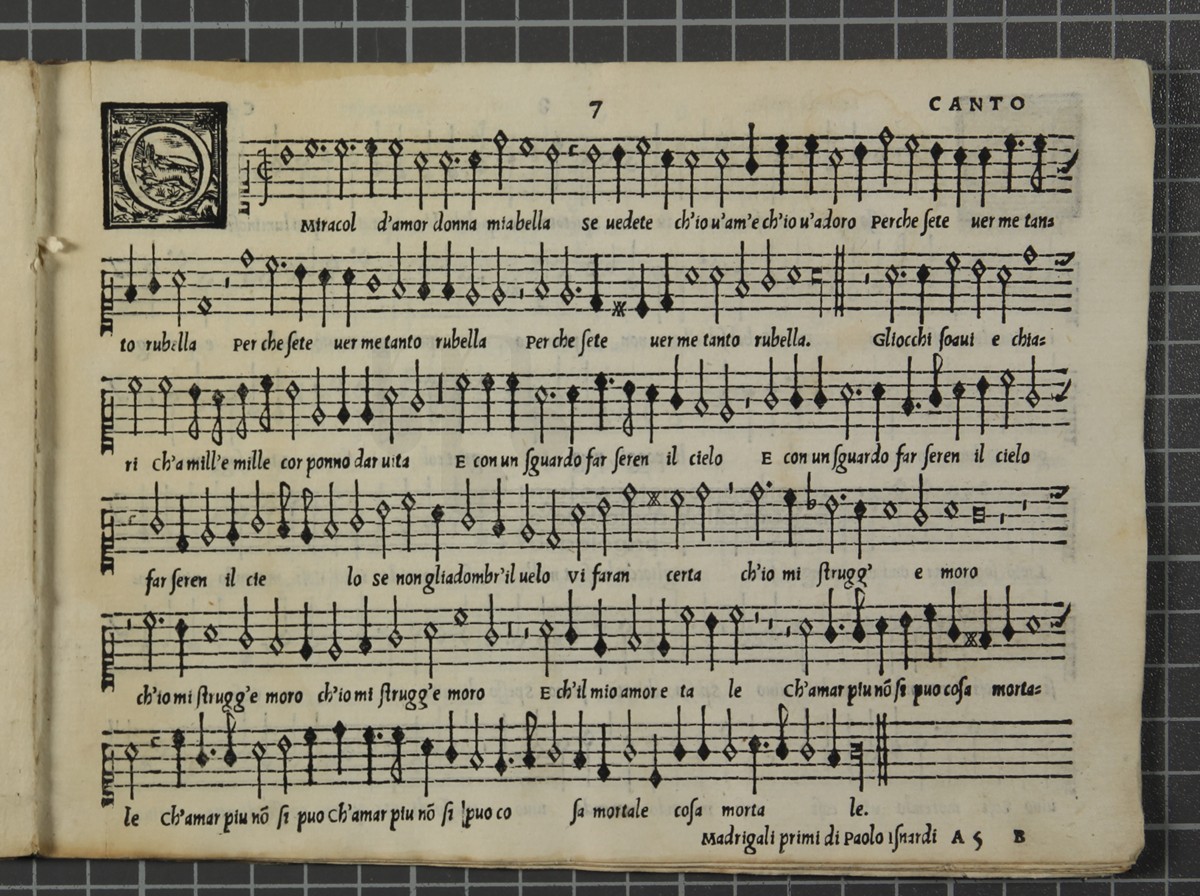 7
CANTO
O Miracol d'amor donna mia bella Se uedete ch'io u'am'e ch'io u'adoro Perche ſete uer me tan=
to rubella Per che ſete uer me tanto rubella Per che ſete uer me tanto rubella. Gliocchi ſoaui e chia=
ri Ch'a mill'e mille cor ponno dar uita E con un ſguardo far ſeren il cielo E con un ſguardo far ſeren il cielo
far ſeren il cie lo se non gliadombr'il uelo Vi faran certa ch'io mi ſtrugg' e moro
ch'io mi ſtrugg'e moro ch'io mi ſtrugg'e moro E ch'il mio amor e ta le Ch'amar piu nõ ſi puo coſa morta=
le Ch'amar piu nõ ſi puo Ch'amar piu nõ ſi puo co ſa mortale coſa morta le.
Madrigali primi di Paolo Iſnardi A 5 B